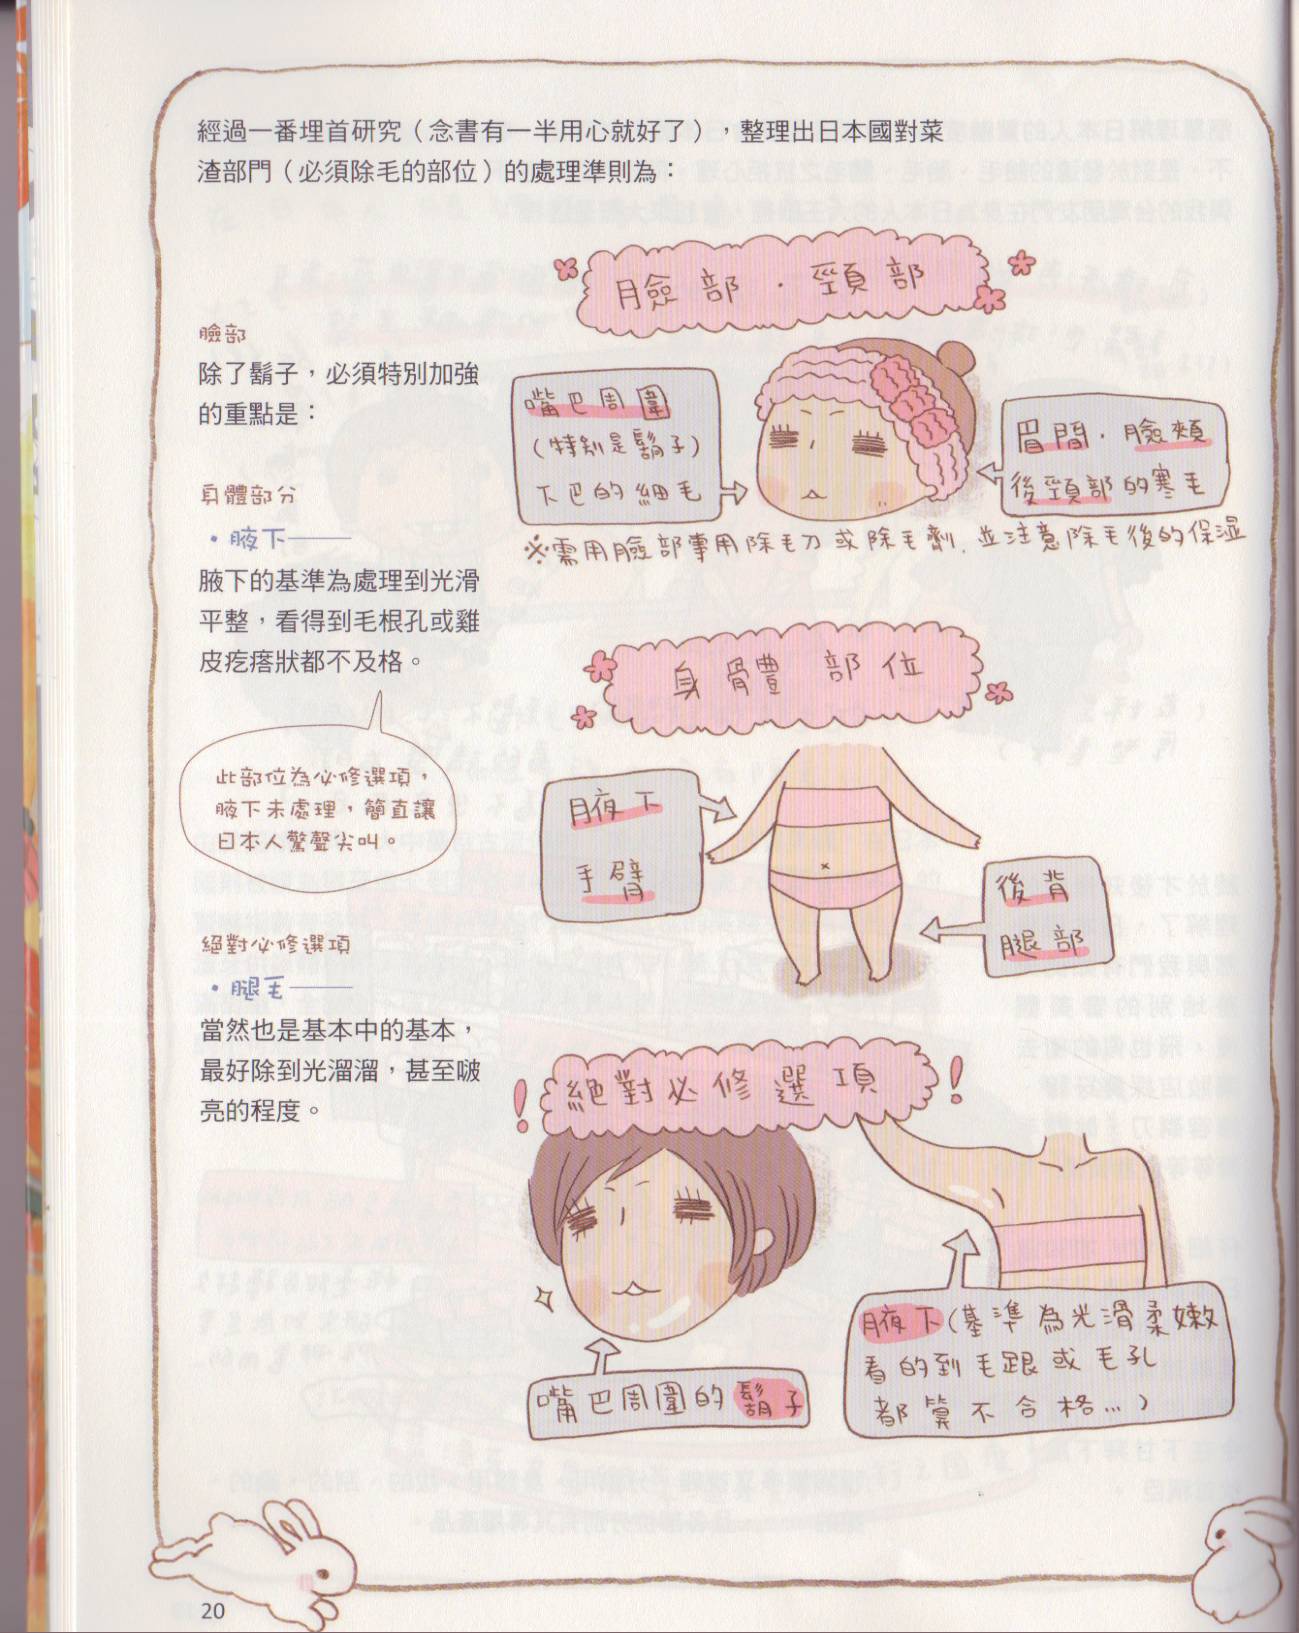 經過一番埋首研究（念書有一半用心就好了），整理出日本國對菜
渣部門（必須除毛的部位）的處理準則為：
臉部
除了鬍子，必須特別加強
的重點是：
身體部分
・腋下——
腋下的基準為處理到光滑
平整，看得到毛根孔或雞
皮疙瘩狀都不及格。
此部位為必修選項，
腋下未處理，簡直讓
日本人驚聲尖叫。
絕對必修選項
・腿毛——
當然也是基本中的基本，
最好除到光溜溜，甚至啵
亮的程度。
臉部・頸部
嘴巴周圍
（特別是鬍子）
下巴的細毛
眉間・臉頰
後頸部的寒毛
※需用臉部專用除毛刀或除毛劑，並注意除毛後的保濕
身體部位
腋下
手臂
後背
腿部
！絕對必修選項！
嘴巴周圍的鬍子
腋下（基準為光滑柔嫩
看的到毛跟或毛孔
都算不合格…）
20